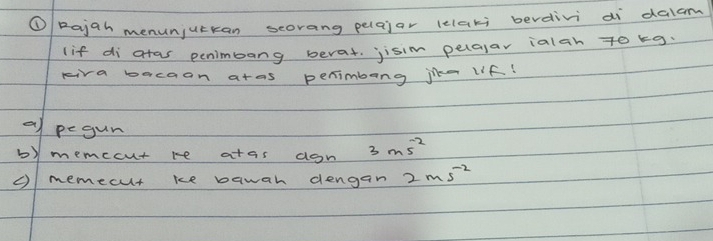 ① Rajah menunjukkan seorang pelajar lelaki berdiri di dalam
lif di atas penimbang berat. jisim pelajar ialah 70 kg.
kira bacaan atas penimbang jika lif!
a) pegun
b) memecut ke atas dgn 3 ms⁻²
c) memecut ke bawah dengan 2 ms⁻²